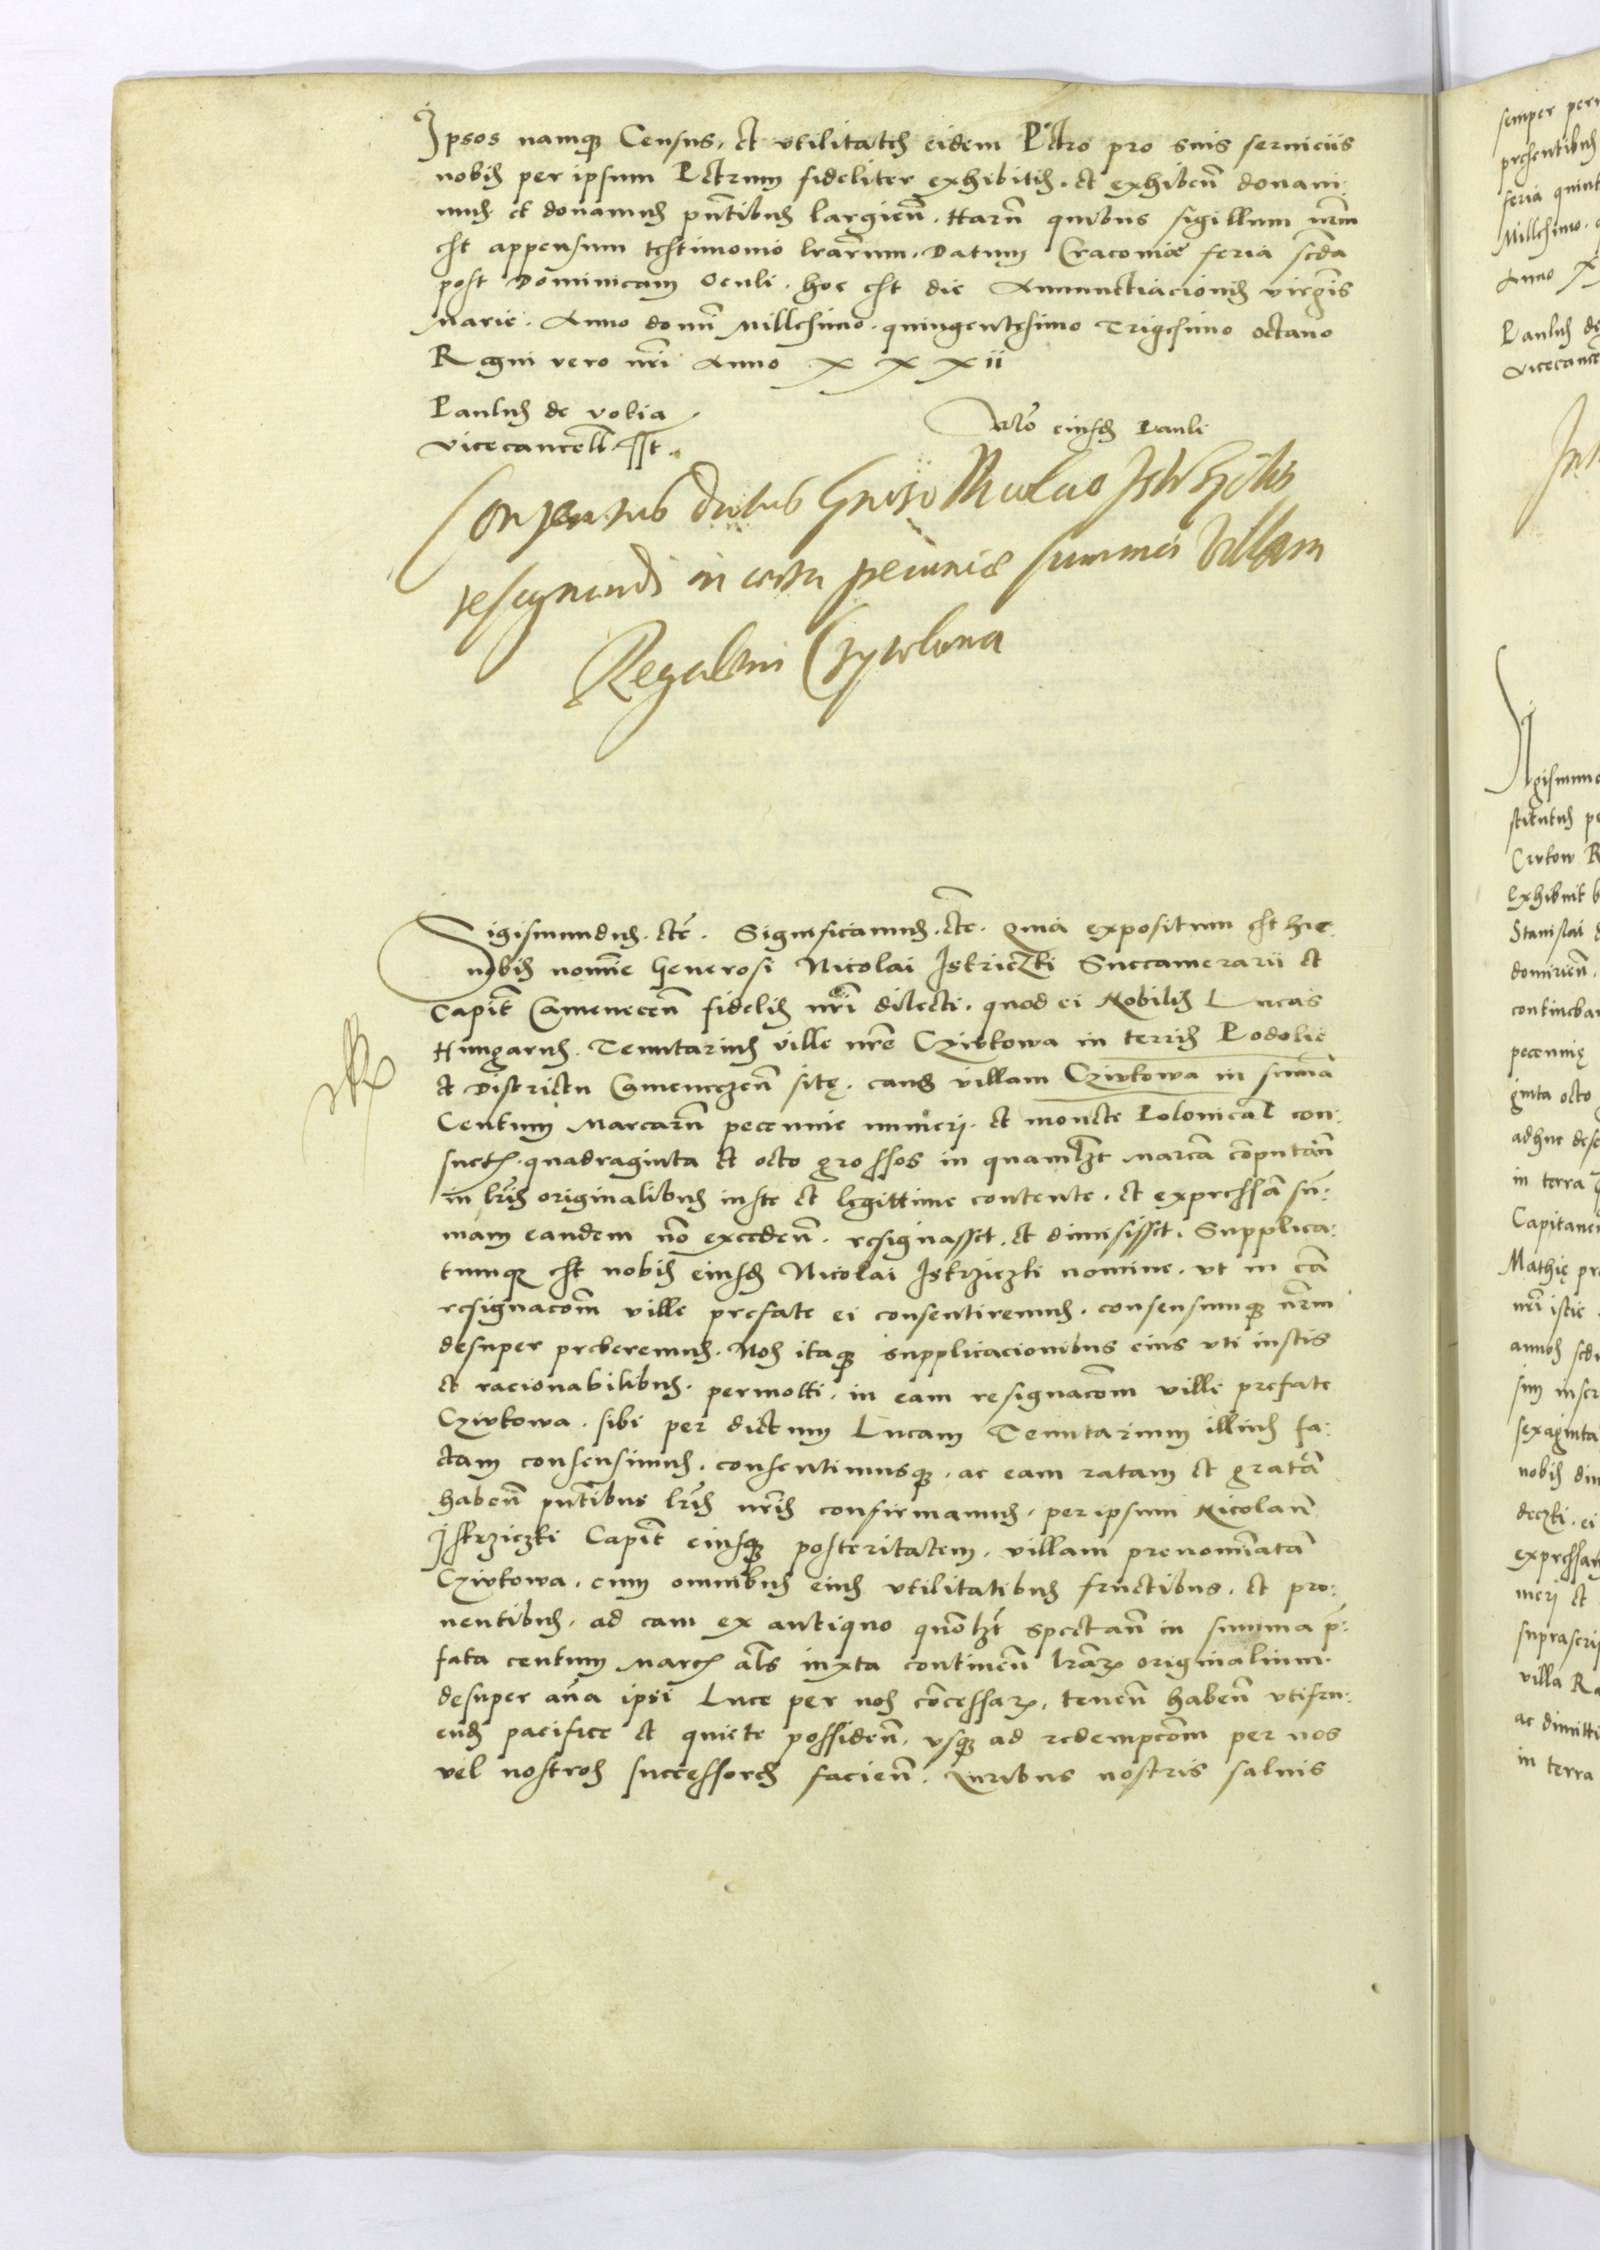 Ipsos namq[ue] Census, et utilitates eidem Petro pro suis serviciis
nobis per ipsum Petrum fideliter exhibitis, et exhiben̄ donavi-
mus et donamus pn̄tibus largien̄. Harū quibus sigillum nr̄m
est appensum testimonio lrārum. Datum Cracoviæ feria scd̄a
post Dominicam Oculi, hoc est die Annunctiacionis virgīs
Marie. Anno domī Millesimo quingentesimo Trigesimo octavo
Regni vero nr̄i Anno XXXii
Paulus de volia
vicecancell̄ sst.
Rlō eiusd̄ Pauli
Consensus datus Gn̄roso Nicolao Iskrzyczki
resignandi in certa pecuniæ summa villam
Regalem Czywkowa
Sigismundus etc̄. Significamus etc̄. Quia expositum est hic
nobis nomīe Generosi Nicolai Iskrziczki Succamerarii et
Capit̄ Camenecen̄ fidelis nr̄i dilecti, quod ei Nobilis Lucas
Hungarus Tenutarius ville nr̄e Czivkowa in terris Podolie
et Districtu Camenczen̄ sitę, eand̄ villam Czivkowa in sum̄a
Centum Marcarū pecunie numeri et monete Polonical̄ con-
suetę, quadraginta et octo grossos in quamlz̄t marcā cōputan̄
in lrīs originalibus iuste et legittime contente, et expressā su-
mam eandem nō exceden̄, resignasset, et dimisisset. Supplica-
tumq[ue] est nobis eiusd̄ Nicolai Iskrziczki nomine, ut in eā
resignacōm ville prefate ei consentiremus, consensumq[ue] nr̄m
desuper preberemus. Nos itaq[ue] supplicacionibus eius uti iustis
et racionabilibus permotti, in eam resignacōm ville prefate
Czivkowa, sibi per dictum Lucam Tenutarium illius fa-
ctam consensimus, consentimusq[ue], ac eam ratam et gratā
haben̄ pn̄tibus lrīs nr̄is confirmamus, per ipsum Nicolaū
Iskrziczki Capit̄ eiusq[ue] posteritatem, villam prenomīatā
Czivkowa, cum omnibus eius utilitatibus fructibus, et pro-
ventibus, ad eam ex antiquo quōlz̄t spectan̄ in summa p̄-
fata centum Marcę al̄s iuxta continen̄ lrārꝝ originalium
desuper an̄a ipsi Luce per nos cōcessarꝝ, tenen̄ haben̄ utifru-
end̄ pacifice et quiete possiden̄, usq[ue] ad redempcōm per nos
vel nostros successores facien̄. Iuribus nostris salvis